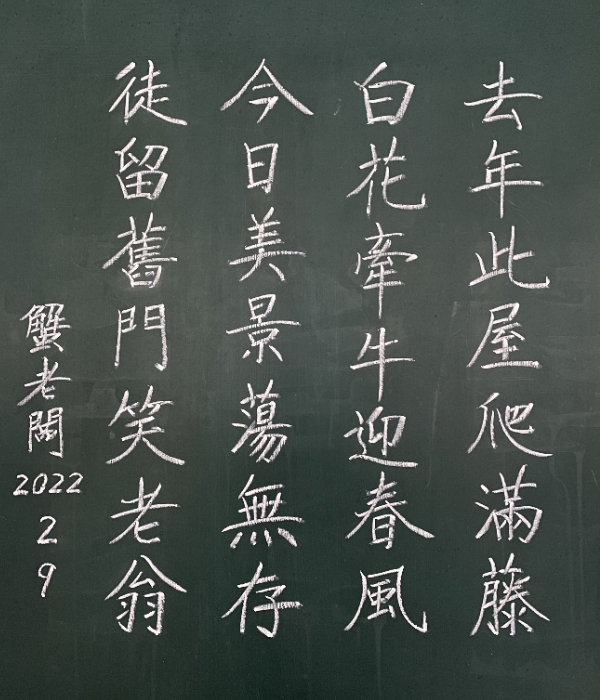 去年此屋爬滿藤
白花牽牛迎春風
今日美景蕩無存
徒留舊門笑老翁
蟹老闆
2022
2
9